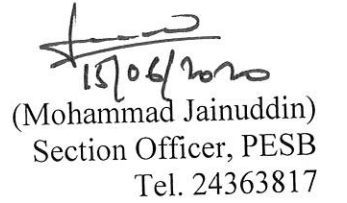 15/06/2020
(Mohammad Jainuddin)
Section Officer, PESB
Tel. 24363817